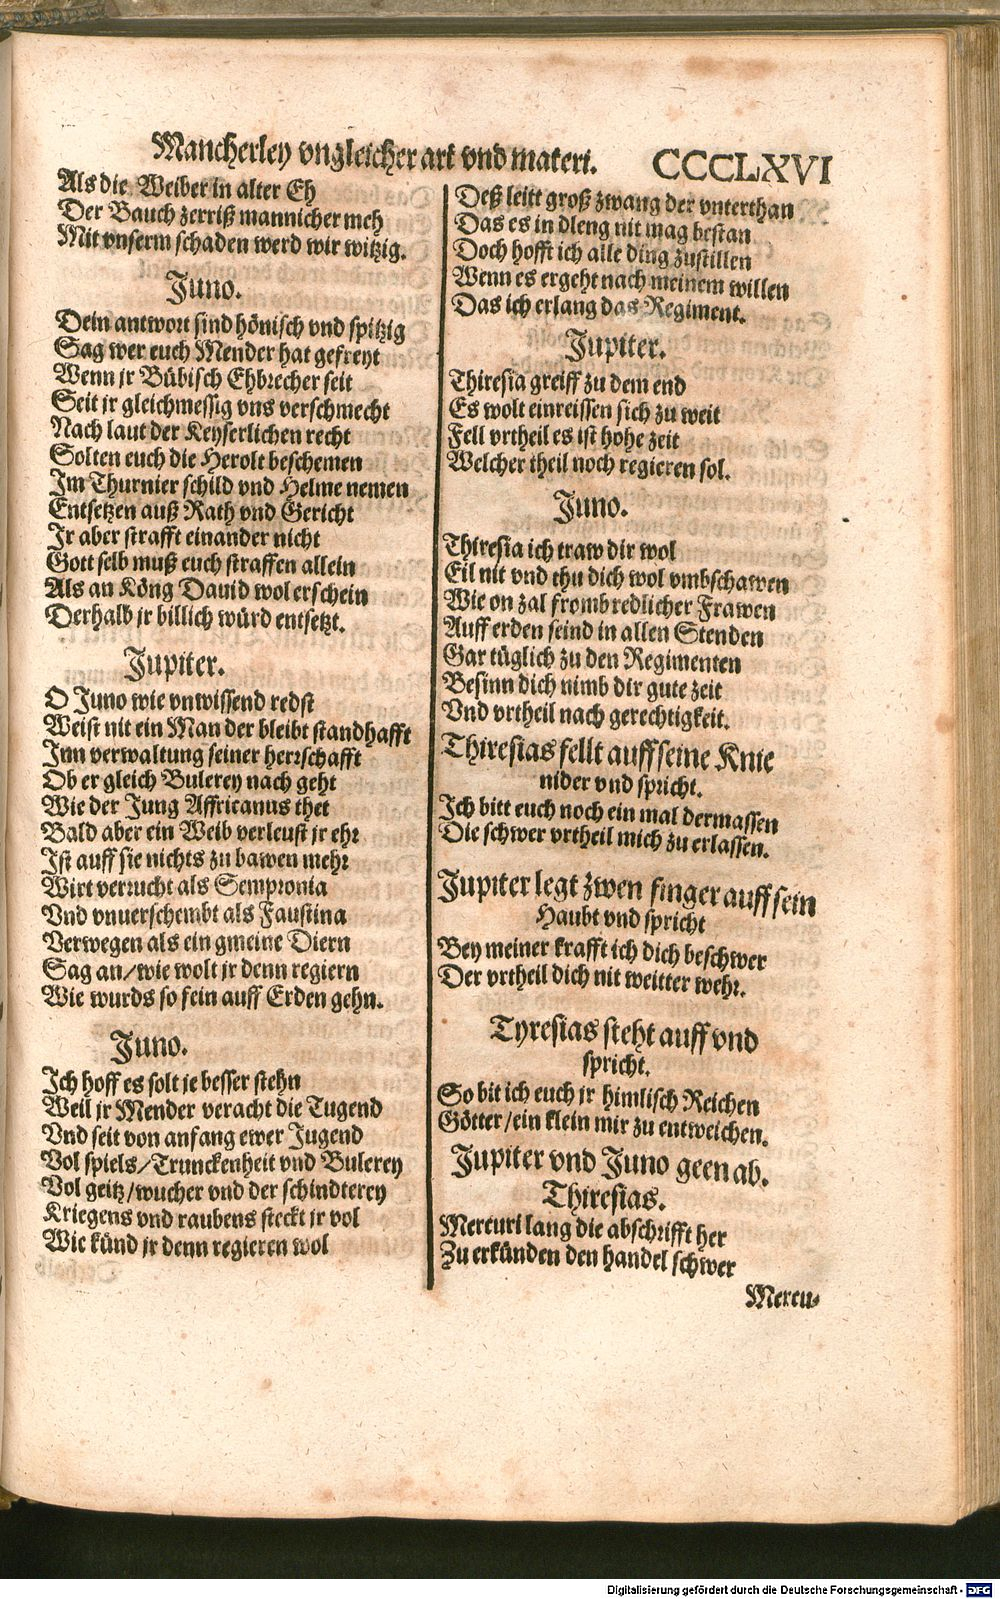 Mancherley vngleicher art vnd materi. CCCLXVI
Als die Weiber in alter Eh
Der Bauch zerriß mannicher meh
Mit vnserm schaden werd wir witzig.
Juno.
Dein antwort sind hönisch vnd spitzig
Sag wer euch Mender hat gefreyt
Wenn jr Bübisch Ehbrecher seit
Seit jr gleichmessig vns verschmecht
Nach laut der Keyserlichen recht
Solten euch die Herolt beschemen
Im Thurnier schild vnd Helme nemen
Entsetzen auß Rath vnd Gericht
Jr aber strafft einander nicht
Gott selb muß euch straffen allein
Als an Köng Dauid wol erschein
Derhalb jr billich würd entsetzt.
Jupiter.
O Juno wie vnwissend redst
Weist nit ein Man der bleibt standhafft
Inn verwaltung seiner herrschafft
Ob er gleich Bulerey nach geht
Wie der Jung Affricanus thet
Bald aber ein Weib verleust jr ehr
Ist auff sie nichts zu bawen mehr
Wirt verrucht als Sempronia
Vnd vnuerschembt als Faustina
Verwegen als ein gmeine Diern
Sag an/wie wolt jr denn regiern
Wie wurds so fein auff Erden gehn.
Juno.
Ich hoff es solt je besser stehn
Weil jr Mender veracht die Tugend
Vnd seit von anfang ewer Jugend
Vol spiels/Trunckenheit vnd Bulerey
Vol geitz/wucher vnd der schindterey
Kriegens vnd raubens steckt jr vol
Wie künd jr denn regieren wol
Deß leitt groß zwang der vnterthan
Das es in dleng nit mag bestan
Doch hofft ich alle ding zustillen
Wenn es ergeht nach meinem willen
Das ich erlang das Regiment.
Jupiter.
Thiresia greiff zu dem end
Es wolt einreissen sich zu weit
Fell vrtheil es ist hohe zeit
Welcher theil noch regieren sol.
Juno.
Thiresia ich traw dir wol
Eil nit vnd thu dich wol vmbschawen
Wie on zal fromb redlicher Frawen
Auff erden seind in allen Stenden
Gar tüglich zu den Regimenten
Besinn dich nimb dir gute zeit
Vnd vrtheil nach gerechtigkeit.
Thiresias fellt auff seine Knie
nider vnd spricht.
Ich bitt euch noch ein mal dermassen
Die schwer vrtheil mich zu erlassen.
Jupiter legt zwen finger auff sein
Haubt vnd spricht
Bey meiner krafft ich dich beschwer
Der vrtheil dich nit weitter wehr.
Tyresias steht auff vnd
spricht.
So bit ich euch jr himlisch Reichen
Götter/ein klein mir zu entweichen.
Jupiter vnd Juno geen ab.
Thiresias.
Mercuri lang die abschrifft her
Zu erkünden den handel schwer
Mercu-
Digitalisierung gefördert durch die Deutsche Forschungsgemeinschaft - DFG